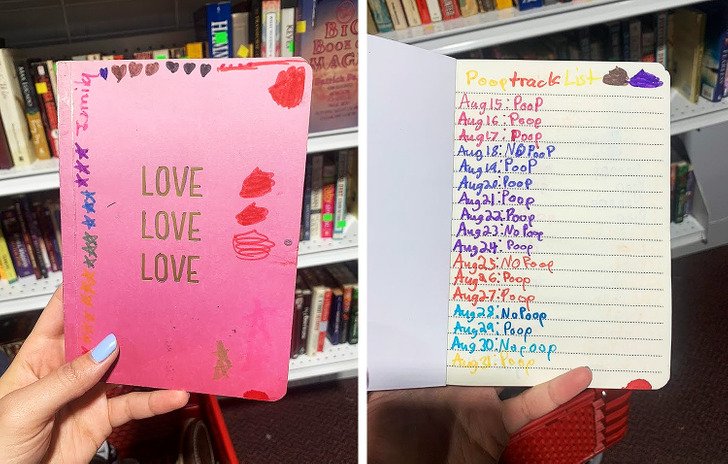 LOVE
LOVE
LOVE
BIG
BOOK OF
MAGIC
Poop track List
Aug 15: PooP
Aug 16: Poop
Aug 17: Poop
Aug 18: NO PooP
Aug 19: PooP
Aug 20: Poop
Aug 21: Poop
Aug 22: Poop
Aug 23: No Poop
Aug 24: Poop
Aug 25: No Poop
Aug 26: Poop
Aug 27: Poop
Aug 28: No Poop
Aug 29: Poop
Aug 30: No poop
Aug 31: Poop